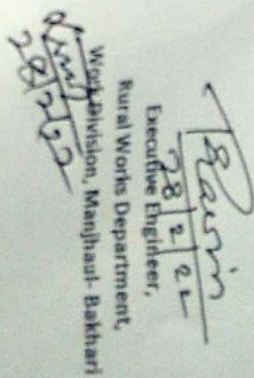 28/2/22
Executive Engineer,
Rural Works Department,
Work Division, Manjhaul- Bakhari
28/2/22